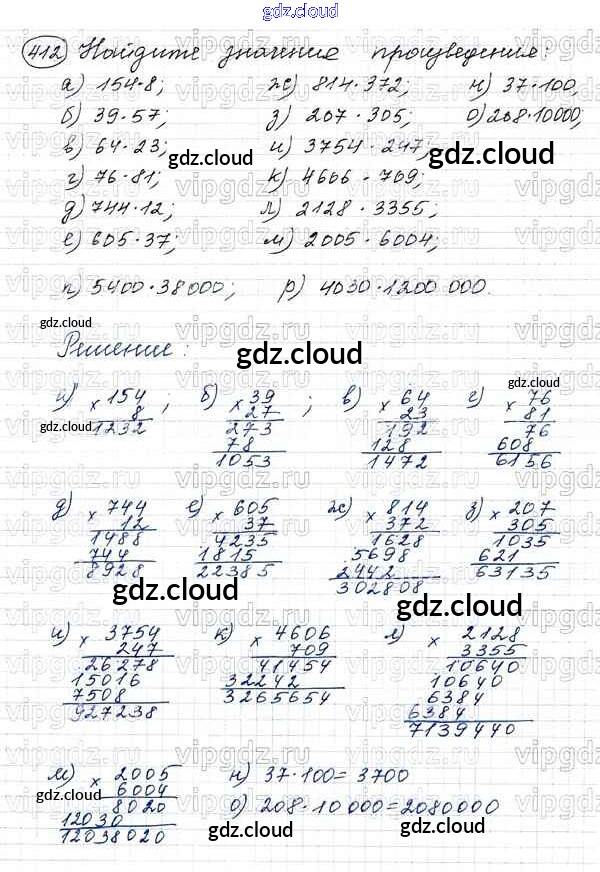 gdz.cloud
412 Найдите значение произведения:
а) 154·8; ж) 814·372; н) 37·100,
б) 39·57; з) 207·305; о) 208·10000;
в) 64·23; и) 3754·247;
gdz.cloud gdz.cloud
г) 76·81; к) 4606·709;
д) 744·12; л) 2128·3355;
е) 605·37; м) 2005·6004;
п) 5400·38000; р) 4030·1200 000.
gdz.cloud
Решение: gdz.cloud
gdz.cloud
а) × 154 ; б) × 39 ; в) × 64 г) × 76
8 27 23 81
1232 273 192 76
78 128 608
1053 1472 6156
д) × 744 е) × 605 ж) × 814 з) × 207
12 37 372 305
1488 4235 1628 1035
744 1815 5698 621
8928 22385 2442 63135
302808
gdz.cloud gdz.cloud gdz.cloud
и) × 3754 к) × 4606 л) × 2128
247 709 3355
26278 41454 10640
15016 32242 10640
7508 3265654 6384
927238 6384
gdz.cloud 7139440
м) × 2005 н) 37·100=3700
6004
gdz.cloud
8020 о) 208·10 000=2080000
12030
12038020
gdz.cloud gdz.cloud
vipgdz.ru